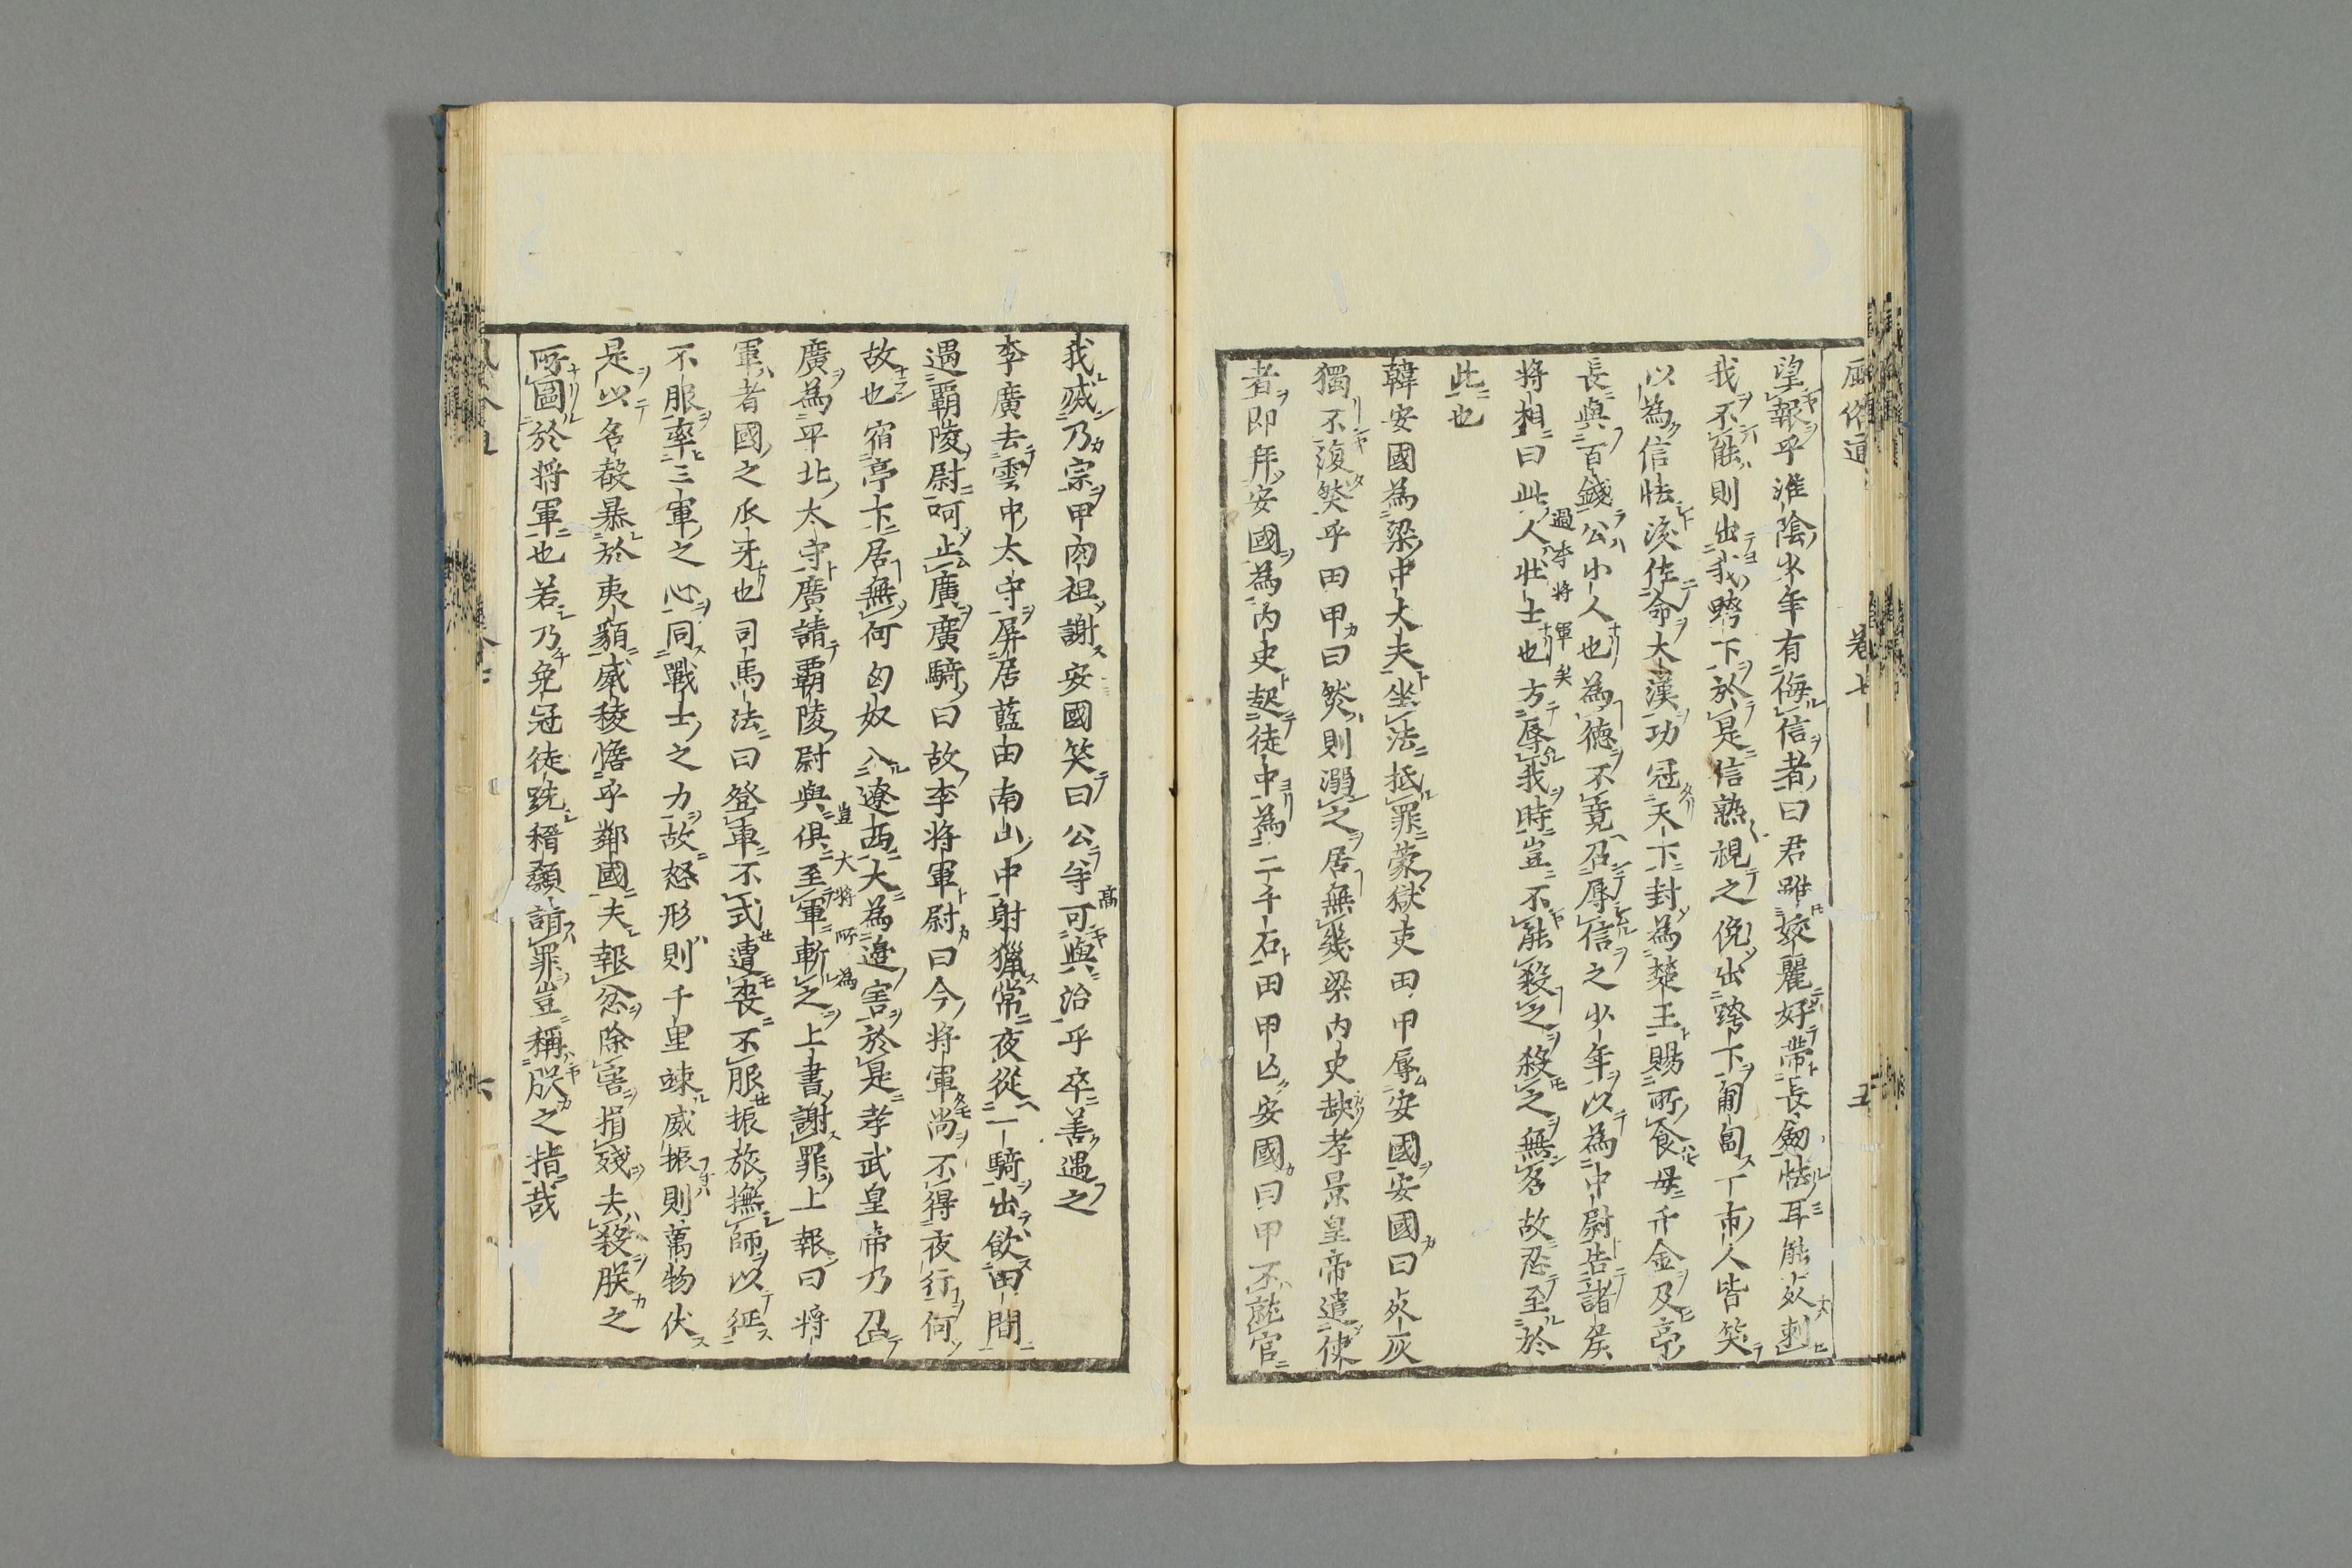 風俗通 卷七 五
望報乎淮陰少年有侮信者曰君雖姣麗好帶長劒怯耳能死刺
我不能則出我跨下於是信熟視之俛出跨下匍匐一市人皆笑
以為信怯後佐命大漢功冠天下封為楚王賜所食母千金及亭
長與百錢公小人也為徳不竟召辱信之少年以為中尉告諸侯
將相曰此人壯士也方辱我時豈不能殺之殺之無名故忍至於
過李將軍矣
此也
韓安國為梁中大夫坐法抵罪蒙獄吏田甲辱安國安國曰死灰
獨不復然乎田甲曰然則溺之居無幾梁内史缺孝景皇帝遣使
者即拜安國為内史起徒中為二千石田甲亡安國曰甲不就官
我滅乃宗甲肉袒謝安國笑曰公等可與治乎卒善遇之
高
李廣去雲中太守屏居藍田南山中射獵常夜從一騎出飲田間
遇霸陵尉呵止廣廣騎曰故李將軍尉曰今將軍尚不得夜行何
故也宿亭下居無何匈奴入遼西大為邊害於是孝武皇帝乃召
廣為平北太守廣請霸陵尉與俱至軍斬之上書謝罪上報曰將
豈大將所為
軍者國之爪牙也司馬法曰登車不式遭喪不服振旅撫師以征
不服率三軍之心同戰士之力故怒形則千里竦威振則萬物伏
是以名聲暴於夷貊威稜憺乎鄰國夫報忿除害捐殘去殺朕之
所圖於將軍也若乃免冠徒跣稽顙請罪豈稱朕之指哉
六